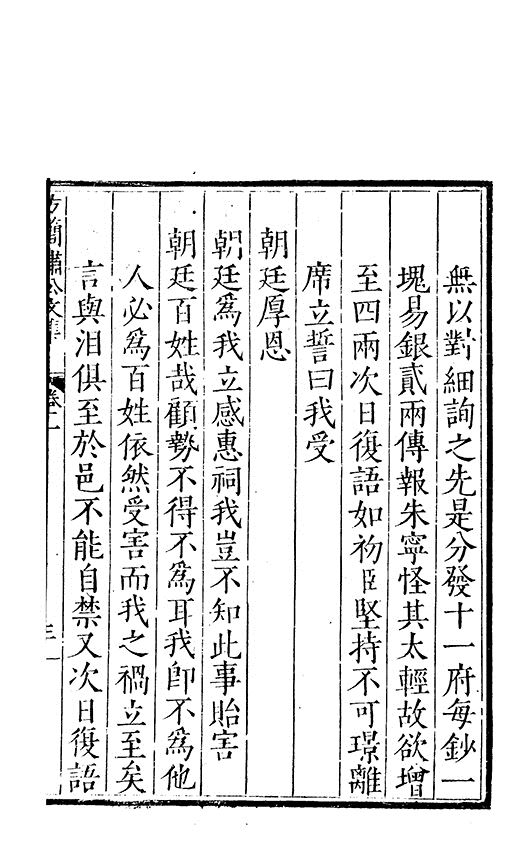 無以對細詢之先是分發十一府每鈔一
塊易銀貳兩傳報朱寧怪其太輕故欲增
至四兩次日復語如初臣堅持不可璟離
席立誓曰我受
朝廷厚恩
朝廷為我立感惠祠我豈不知此事貽害
朝廷百姓哉顧勢不得不為耳我即不為他
人必為百姓依然受害而我之禍立至矣
言與泪俱至於邑不能自禁又次日復語
方簡肅公文集
卷二
三